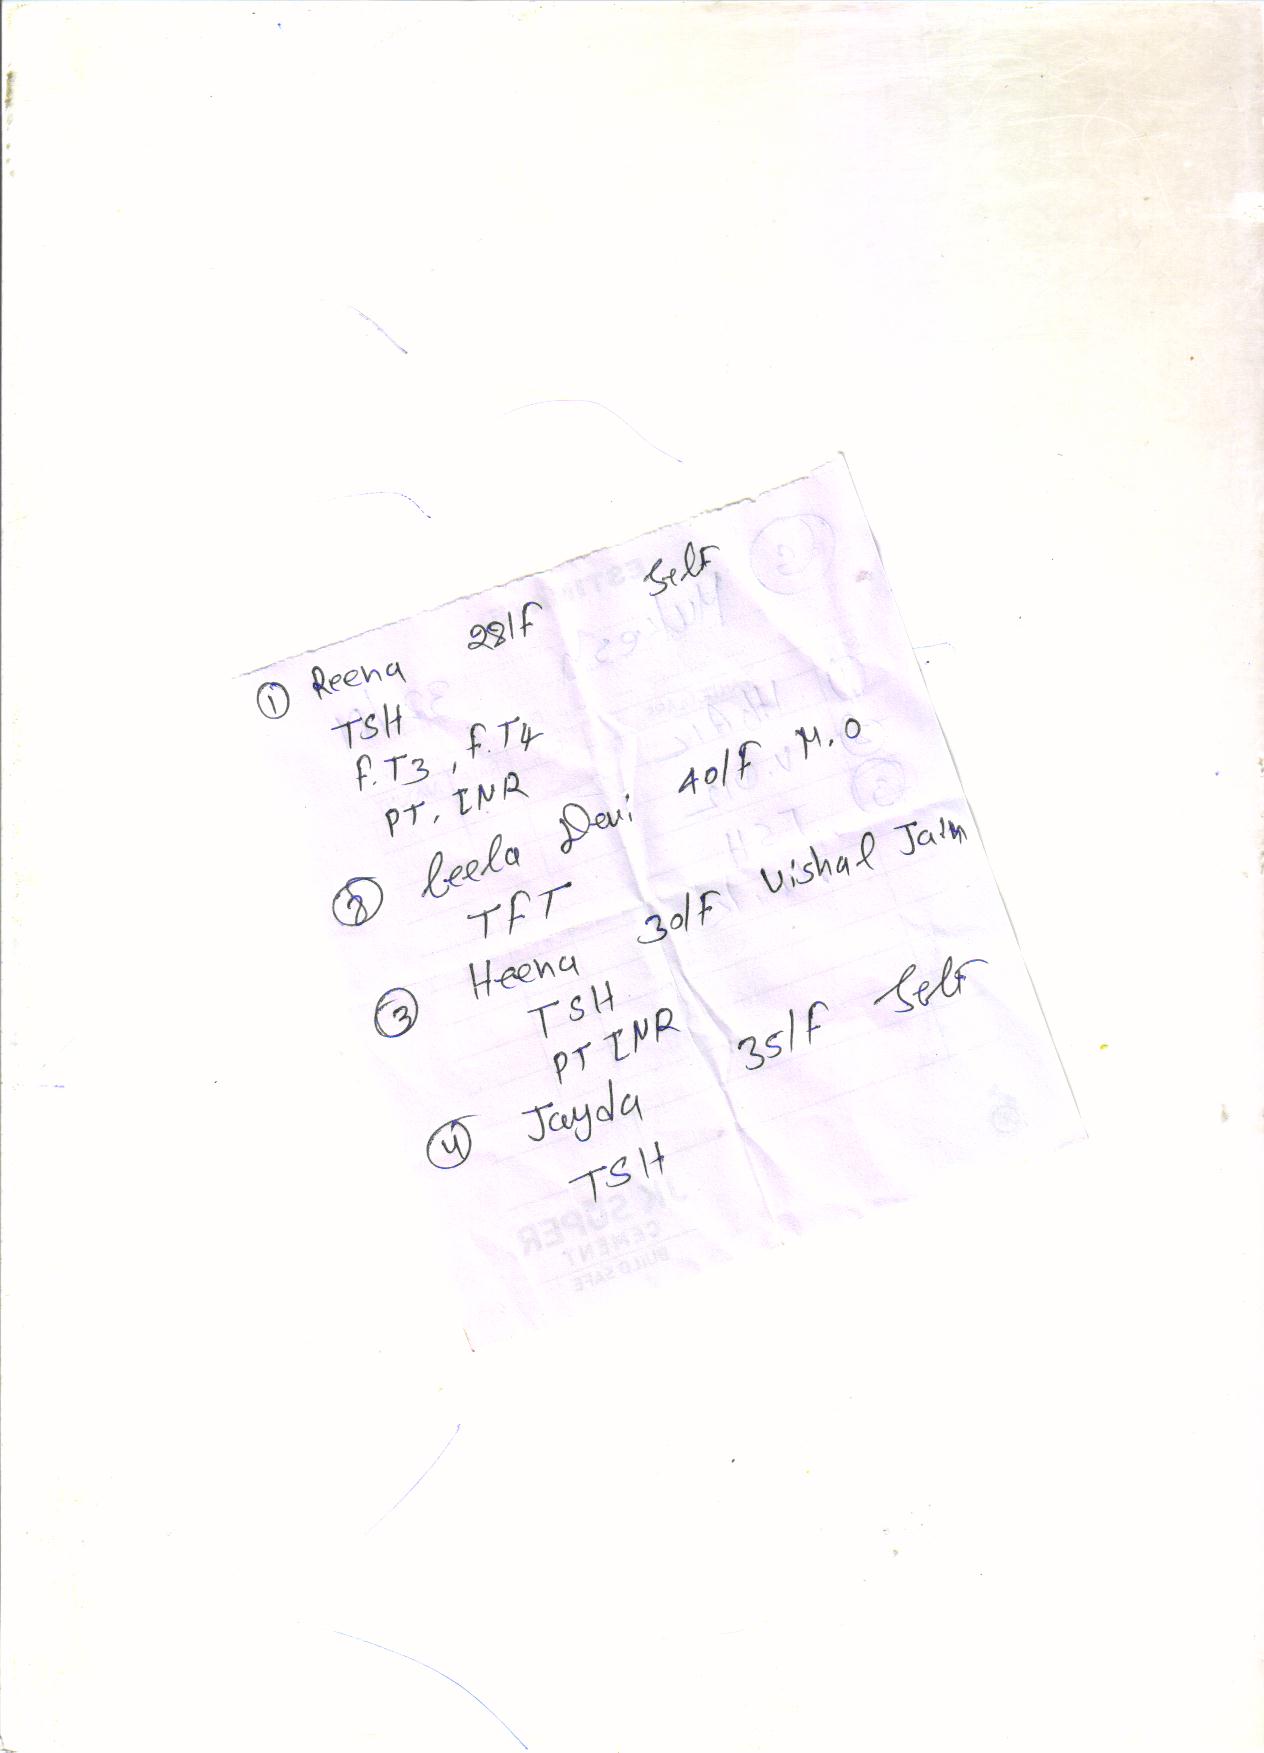 ① Reena 28/F Self
TSH
F.T3, F.T4
PT, INR
② Leela Devi 40/F M.O
TFT
③ Heena 30/F Vishal Jain
TSH
PT INR
④ Jayda 35/F Self
TSH
JK SUPER
CEMENT
BUILD SAFE